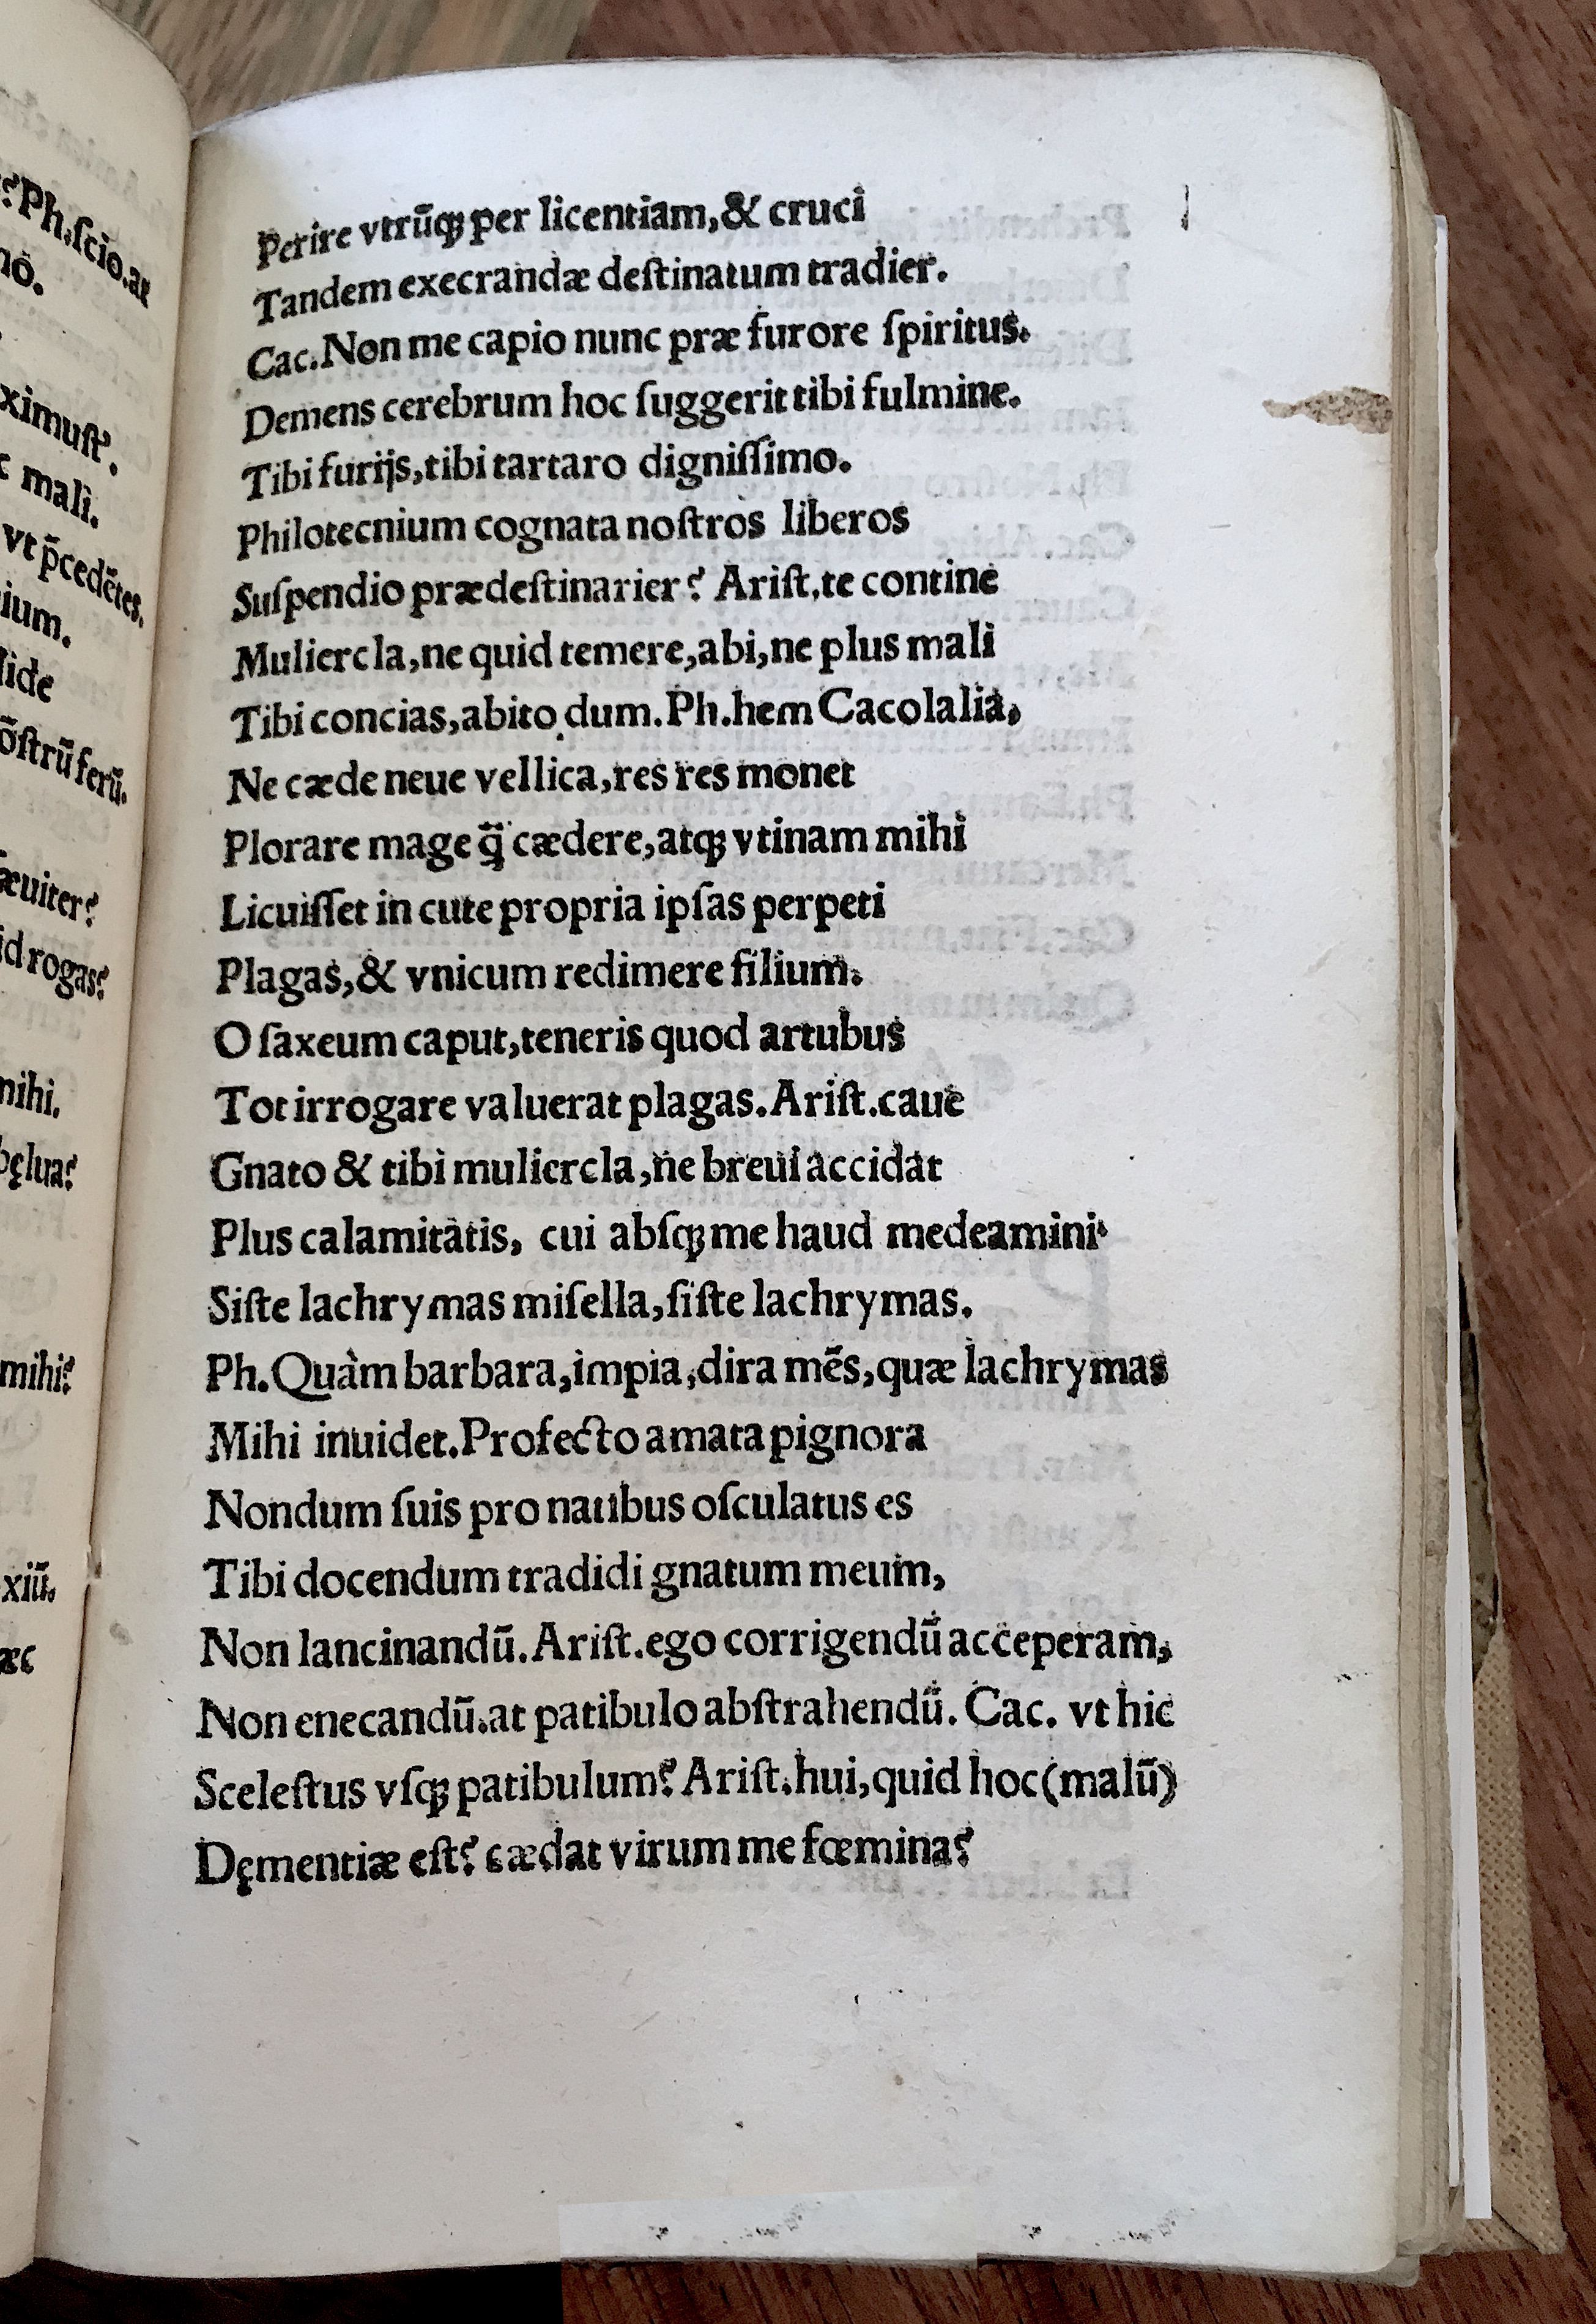 ?Ph.ſcio.at
nō.
ximuſt'.
mali.
vt p̄cedētes.
ium.
lide
ōſtrū ferū.
æuiter?
id rogas?
mihi.
bęlua?
mihi?
xiū.
æc
Perire vtrūqꝫ per licentiam,& cruci
Tandem execrandæ deſtinatum tradier.
Cac.Non me capio nunc præ furore ſpiritus.
Demens cerebrum hoc ſuggerit tibi fulmine.
Tibi furijs,tibi tartaro digniſſimo.
Philotecnium cognata noſtros liberos
Suſpendio prædeſtinarier? Ariſt.te contine
Muliercla,ne quid temere,abi,ne plus mali
Tibi concias,abito dum.Ph.hem Cacolalia,
Ne cæde neue vellica,res res monet
Plorare mage q̄ cædere,atqꝫ vtinam mihi
Licuiſſet in cute propria ipſas perpeti
Plagas,& vnicum redimere filium.
O ſaxeum caput,teneris quod artubus
Tot irrogare valuerat plagas.Ariſt.caue
Gnato & tibi muliercla,ne breui accidat
Plus calamitatis, cui abſqꝫ me haud medeamini.
Siſte lachrymas miſella,ſiſte lachrymas.
Ph.Quàm barbara,impia,dira mēs,quæ lachrymas
Mihi inuidet.Profecto amata pignora
Nondum ſuis pro natibus oſculatus es
Tibi docendum tradidi gnatum meum,
Non lancinandū.Ariſt.ego corrigendū acceperam,
Non enecandū.at patibulo abſtrahendū. Cac. vt hic
Sceleſtus vſqꝫ patibulum? Ariſt.hui,quid hoc(malū)
Dęmentiæ eſt? cædat virum me fœmina?